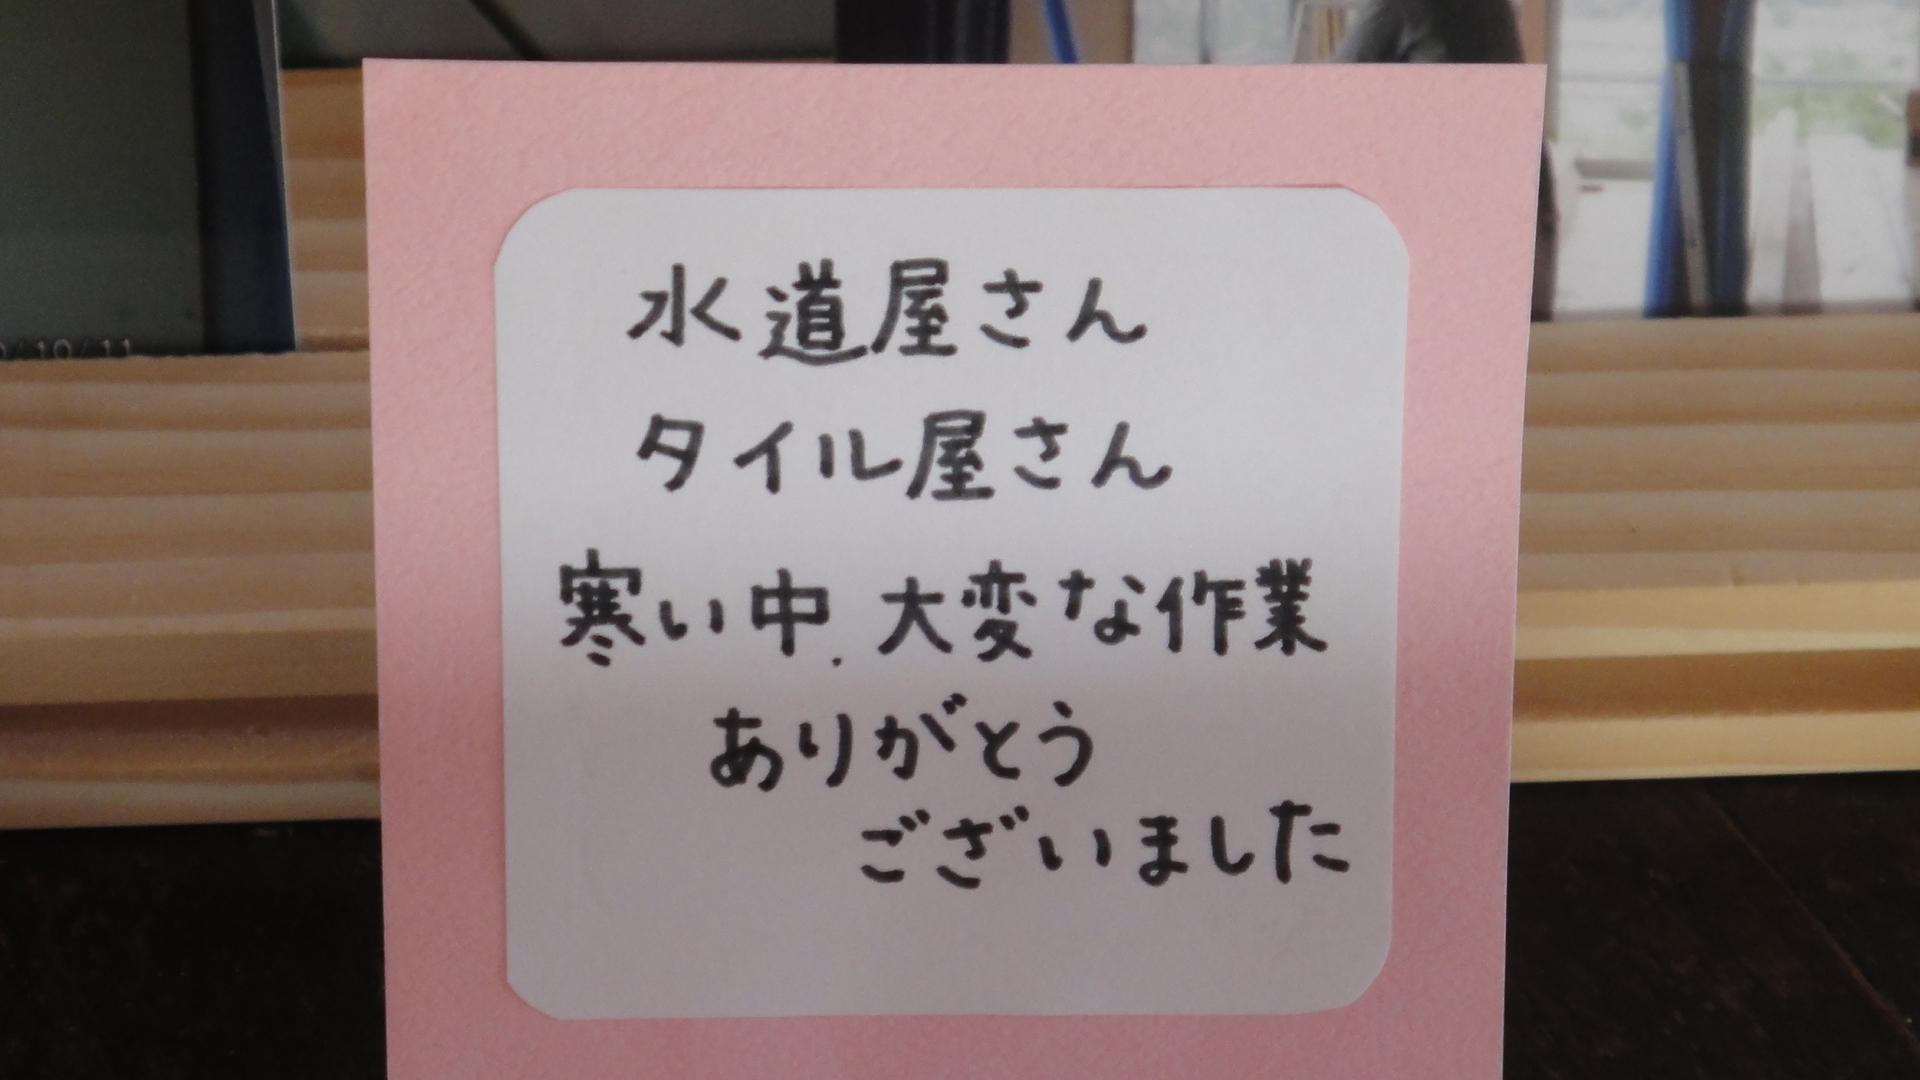 水道屋さん
タイル屋さん
寒い中、大変な作業
ありがとう
ございました
0/10/11